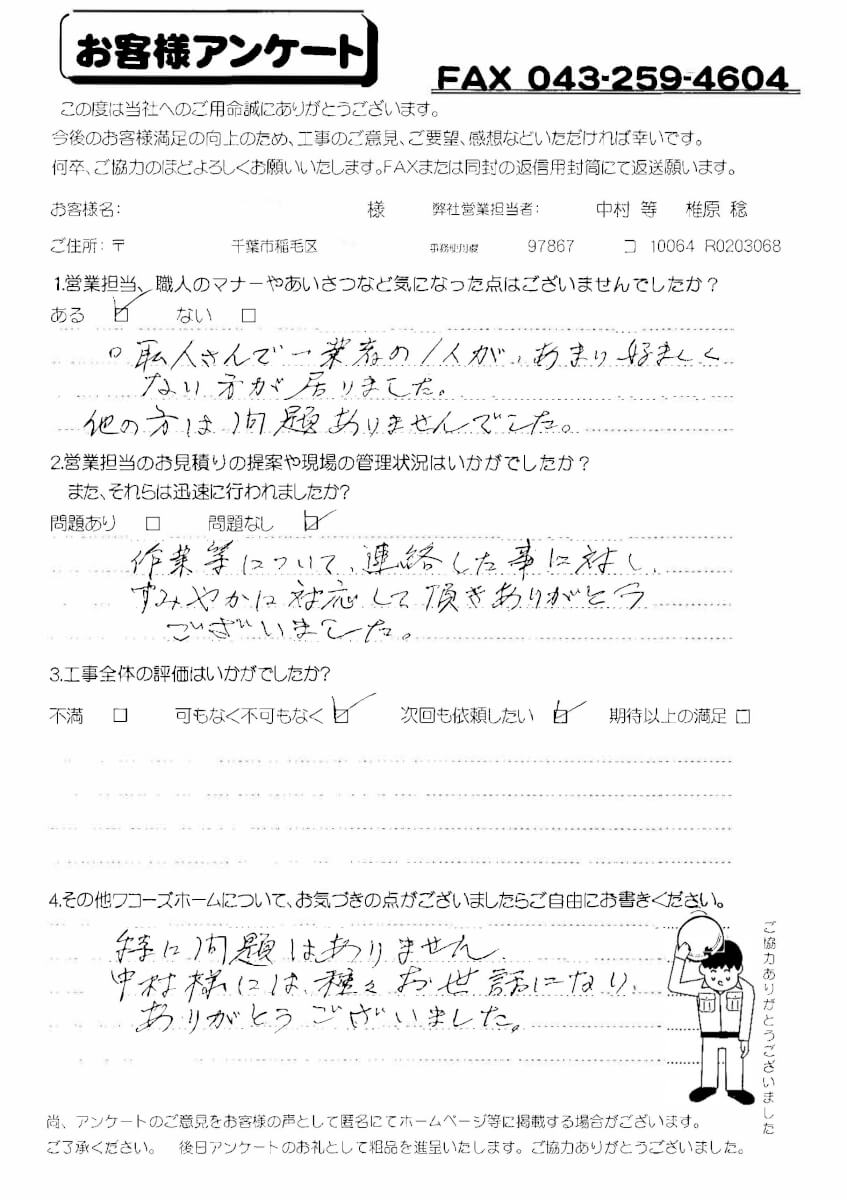 お客様アンケート
FAX 043-259-4604
この度は当社へのご用命誠にありがとうございます。
今後のお客様満足の向上のため、工事のご意見、ご要望、感想などいただければ幸いです。
何卒、ご協力のほどよろしくお願いいたします。FAXまたは同封の返信用封筒にて返送願います。
お客様名: 様 弊社営業担当者: 中村 等 椎原 稔
ご住所:〒 千葉市稲毛区 事務処理欄 97867 コ 10064 R0203068
1.営業担当、職人のマナーやあいさつなど気になった点はございませんでしたか?
ある ☑ ない □
○職人さんで一業者の1人が、あまり好ましく
ない方が居りました。
他の方は問題ありませんでした。
2.営業担当のお見積りの提案や現場の管理状況はいかがでしたか?
また、それらは迅速に行われましたか?
問題あり □ 問題なし ☑
作業等について、連絡した事に対し、
すみやかに対応して頂きありがとう
ございました。
3.工事全体の評価はいかがでしたか?
不満 □ 可もなく不可もなく ☑ 次回も依頼したい ☑ 期待以上の満足 □
4.その他ワコーズホームについて、お気づきの点がございましたらご自由にお書きください。
特に問題はありません。
中村様には、種々お世話になり、
ありがとうございました。
ご協力ありがとうございました
尚、アンケートのご意見をお客様の声として匿名にてホームページ等に掲載する場合がございます。
ご了承ください。 後日アンケートのお礼として粗品を進呈いたします。ご協力ありがとうございました。